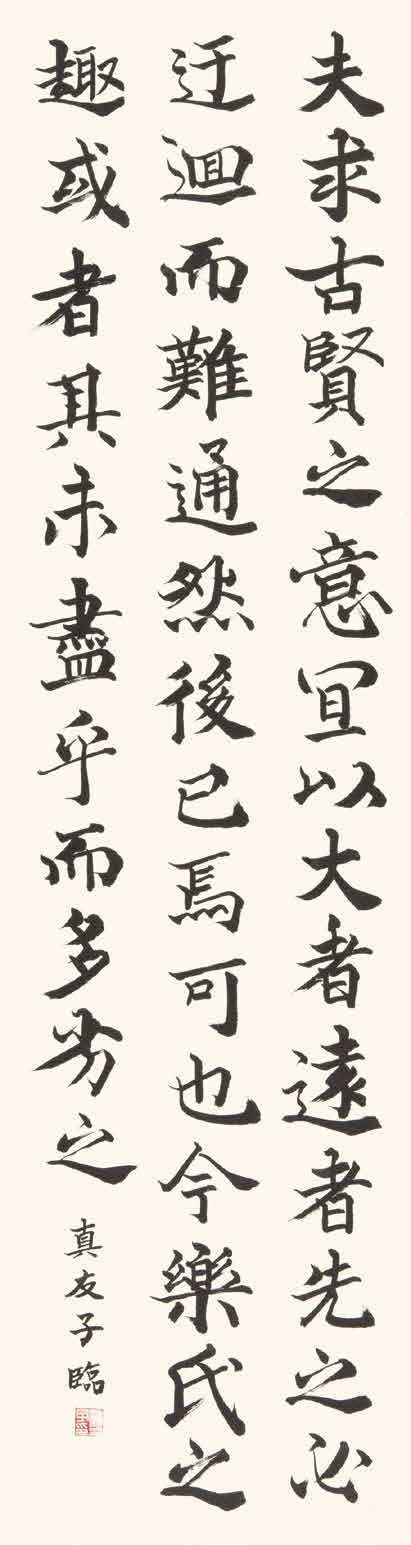 夫求古賢之意宜以大者遠者先之必
迂迴而難通然後已焉可也今樂氏之
趣或者其未盡乎而多劣之
真友子臨